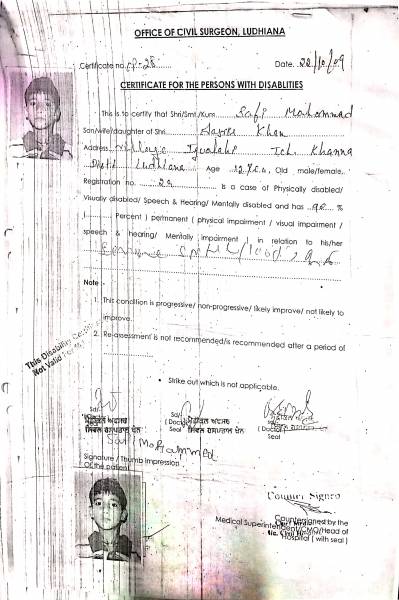 OFFICE OF CIVIL SURGEON, LUDHIANA
Certificate no. CP-28 Date. 22/10/09
CERTIFICATE FOR THE PERSONS WITH DISABLITIES
This is to certify that Shri/Smt/Kum Safi Mohammad
Son/wife/daughter of Shri Khan
Address Village Teh. Khanna
Distt Ludhiana Age 12 Yrs, Old male/female,
Registration no. 29 is a case of Physically disabled/
Visually disabled/ Speech & Hearing/ Mentally disabled and has 90 %
( Percent ) permanent ( physical impairment / visual impairment /
speech & hearing/ Mentally impairment ) in relation to his/her
Note :-
1. This condition is progressive/ non-progressive/ likely improve/ not likely to
improve.
2. Re-assessment is not recommended/is recommended after a period of
This Disability
Not Valid For
• Strike out which is not applicable.
Sd/- Sd/- Sd/-
(Doctor)
ਮੈਡੀਕਲ ਅਫਸਰ ਮੈਡੀਕਲ ਅਫਸਰ
ਸਿਵਲ ਹਸਪਤਾਲ ਸਿਵਲ ਹਸਪਤਾਲ
Seal Seal Seal
Safi Mohammed
Signature / Thumb Impression
Of the patient
Counter Signed
Countersigned by the
Medical Superintendent/CMO/Head of
Hospital ( with seal )